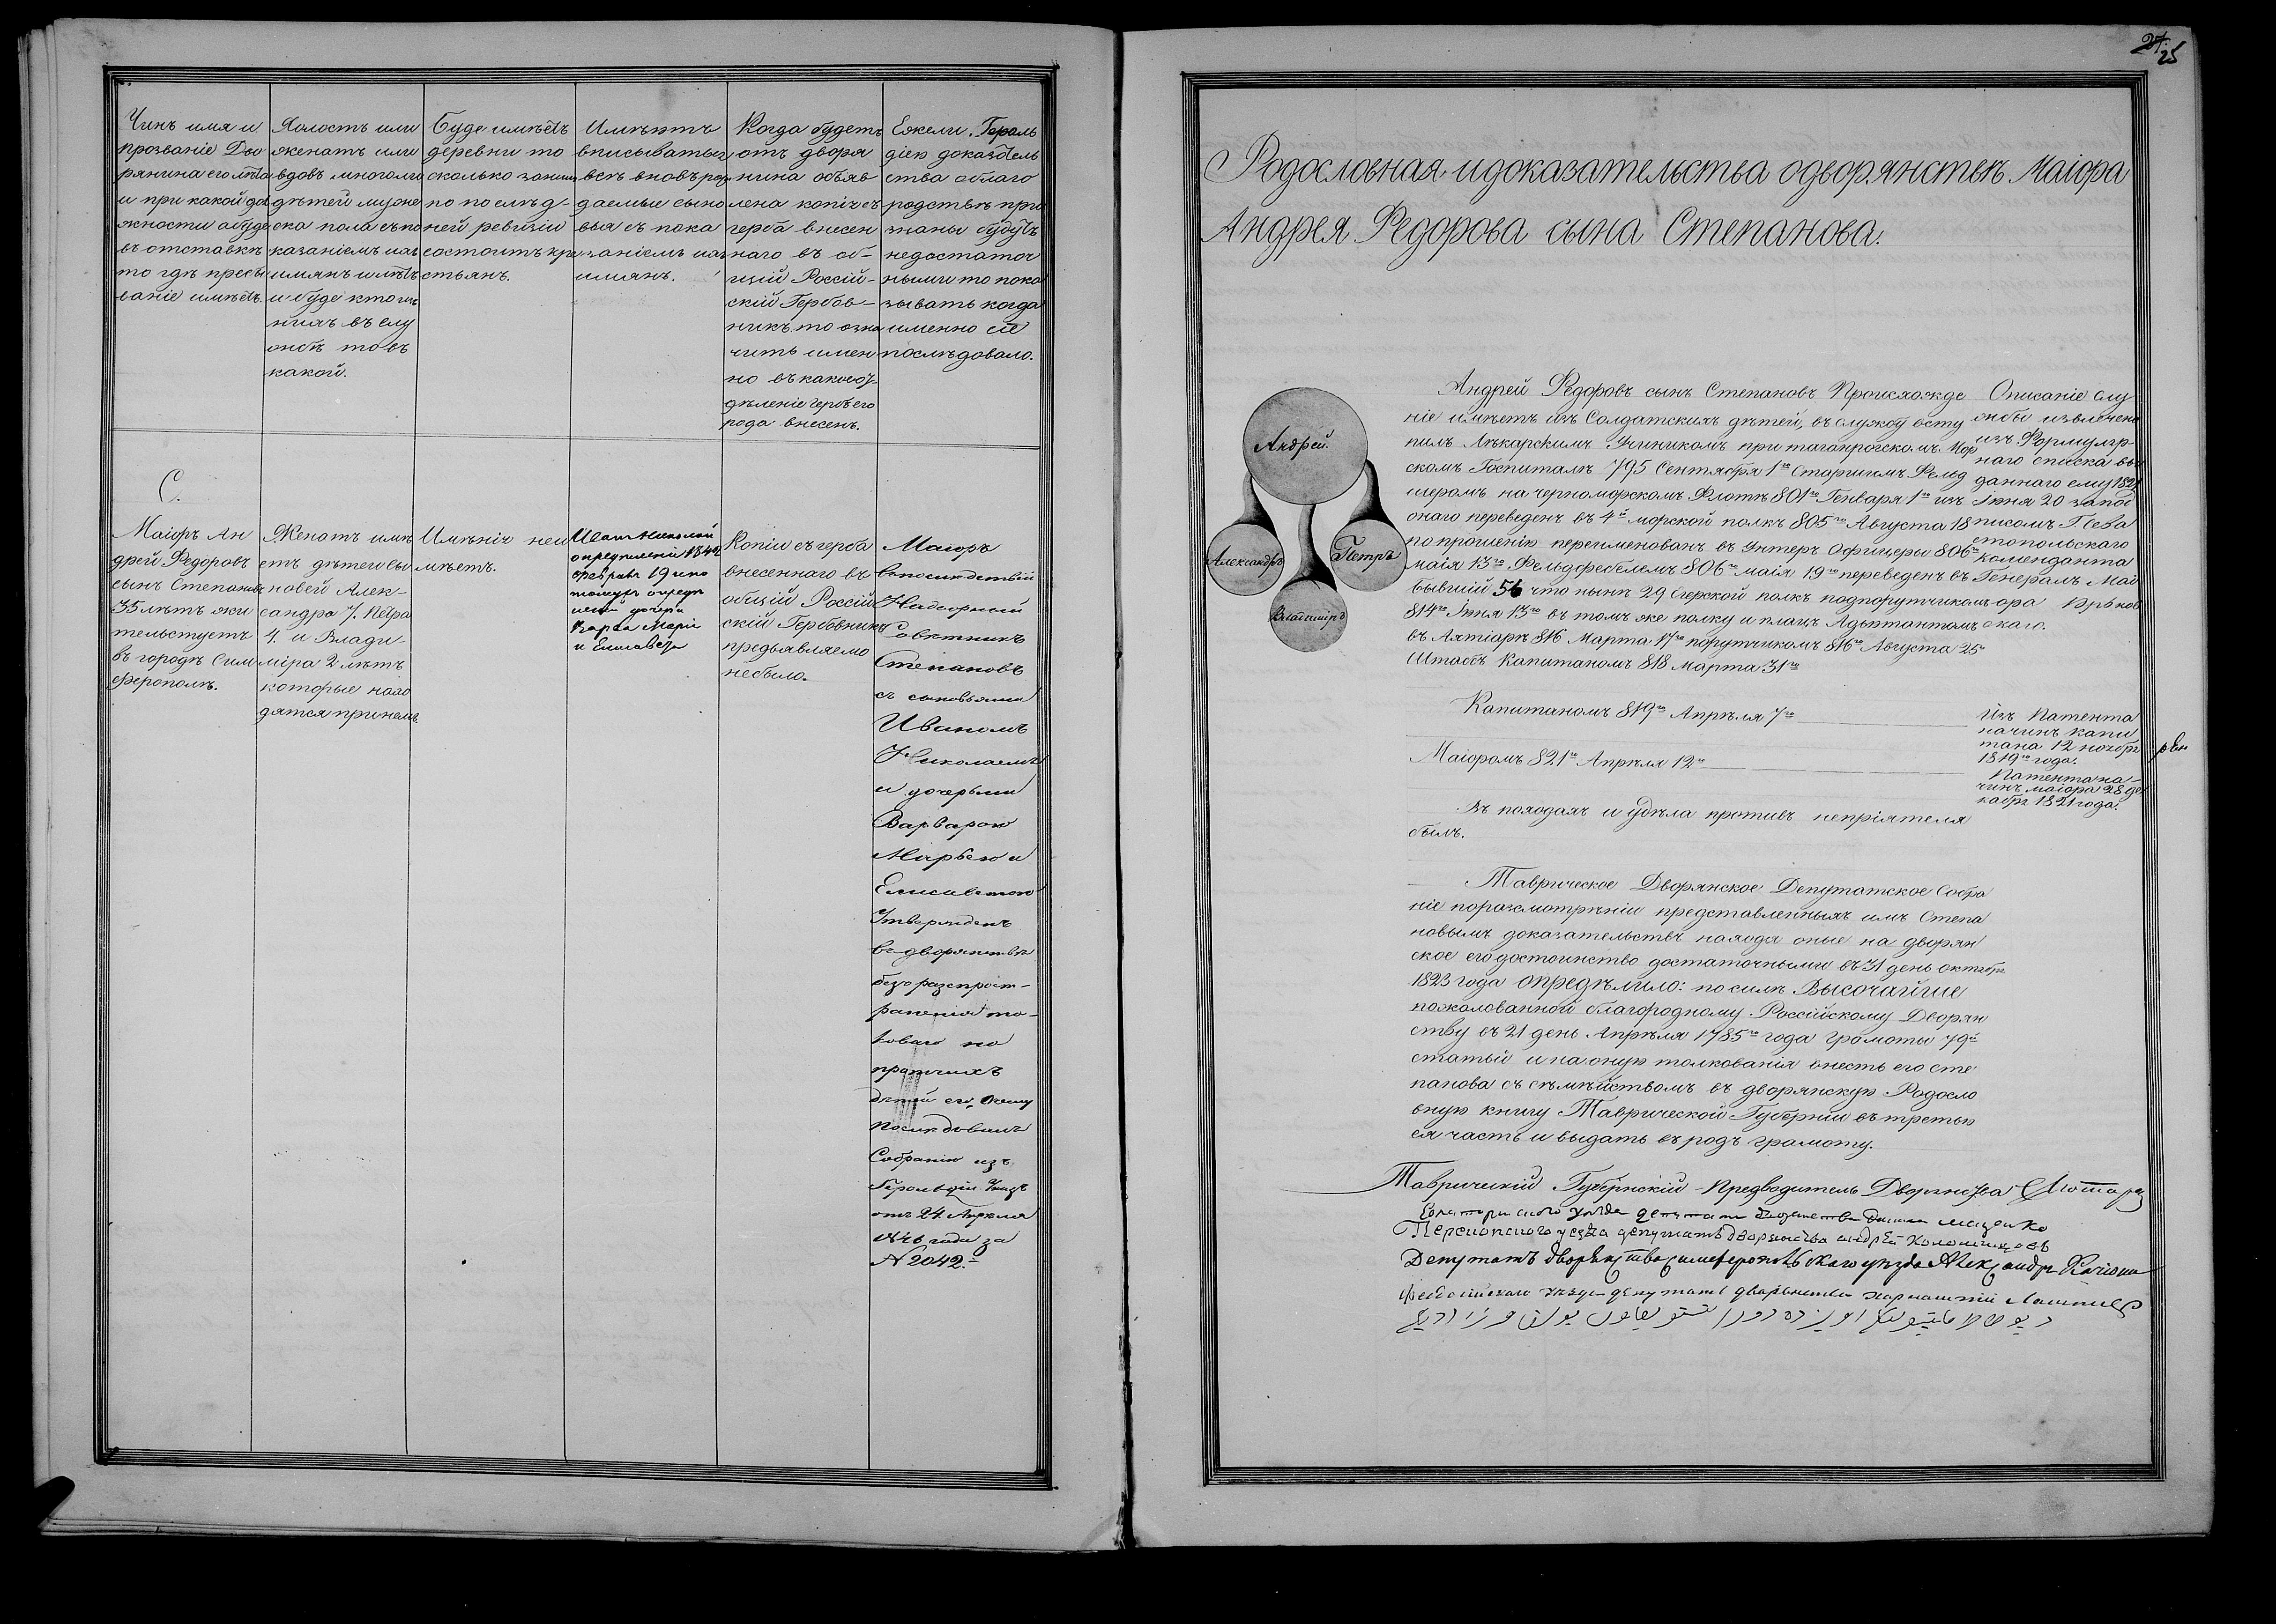 Чинъ имя и
прозваніе Дво
рянина его лѣта
и при какой дол
жности а буде
въ отставкѣ
то гдѣ пребы
ваніе имѣетъ.
Холостъ или
женатъ или
вдовъ много ли
дѣтей мужес
ска пола съ по
казаніемъ ихъ
имянъ и лѣтъ
и буде кто изъ
нихъ въ слу
жбѣ то въ
какой.
Буде имѣетъ
деревни то
сколько за ним
по послѣд-
ней ревизіи
состоитъ кре
стьянъ.
Имѣютъ
вписыватьс
всѣ вновь рож
даемые сыно
вья съ пока
заніемъ ихъ
имянъ.
Когда будетъ
отъ дворя
нина объяв
лена копія съ
герба внесен
наго въ об-
щій Россій-
скій Гербов-
никъ то озна
чить имен
но въ какое от-
дѣленіе гербъ его
рода внесенъ.
Ежели Героль
діею доказатель
ства о благо
родствѣ при
знаны будутъ
недостаточ
ными то пока
зывать когда
именно сіе
послѣдовало.
С.
Маіоръ Ан
дрей Ѳедоровъ
сынъ Степановъ
35 лѣтъ жи
тельствуетъ
въ городѣ Сим
ферополѣ.
Женатъ имѣ
етъ дѣтей сы
новей Алек-
сандра 7. Петра
4. и Влади
міра 2 лѣтъ
которые нахо
дятся при немъ.
Имѣнія неи
мѣетъ.
Иванъ Николай
опредѣленіи 1842
февраля 19 чис
дочери
Варва Марія
и Елисавета
Копіи съ герба
внесеннаго въ
общій Россій
скій Гербовникъ
предъявляемо
небыло.
Маіоръ
впослѣдствіи
Надворный
Совѣтникъ
Степановъ
съ сыновьями
Иваномъ
Николаемъ
и дочерьми
Варварою
Марьею и
Елисаветою
Утвержденъ
въ дворянствѣ
безъ распрост-
раненія та-
коваго на
протчихъ
дѣтей его, о чемъ
послѣдовалъ
Собранію изъ
Герольдіи Указъ
отъ 24 Апреля
1846 года за
№ 2042.
25
Родословная и доказательства о дворянствѣ Маіора
Андрея Ѳедорова сына Степанова.
Андрей
Александръ
Петръ
Владиміръ
Андрей Ѳедоровъ сынъ Степановъ Происхожде
ніе имѣетъ изъ Солдатскихъ дѣтей, въ службу всту
пилъ Лѣкарскимъ Ученикомъ при таганрогскомъ Мор
скомъ Госпиталѣ 795 Сентября 1го Старшимъ Фельд
шеромъ на черноморскомъ Флотѣ 801го Генваря 1го изъ
онаго переведенъ въ 4й морской полкъ 805го Августа 18
по прошенію переименованъ въ Унтеръ Офицеры 806го
маія 13го Фельдфебелемъ 806го маія 19го переведенъ въ
бывшій 56 что нынѣ 29 Егерской полкъ подпорутчикомъ
814го Іюня 13го въ томъ же полку и плацъ Адъютантомъ
въ Ахтіарѣ 816 Марта 17го порутчикомъ 816го Августа 25го
Штабсъ Капитаномъ 818 марта 31го
Описаніе слу
жбы извлечено
изъ Формуляр-
наго списка вы
даннаго ему 1821
Іюня 20 запод
писомъ Сева
стопольскаго
Коменданта
Генералъ Маі
ора
скаго.
Капитаномъ 819го Апрѣля 7го
Маіоромъ 821го Апрѣля 12го
Изъ Патента
на чинъ капи
тана 12 ноября
1819го года.
Патента на-
чинъ маіора 28 де
кабря 1821 года.
Въ походахъ и у дѣла противъ непріятеля
былъ.
Таврическое Дворянское Депутатское Собра
ніе поразсмотрѣніи представленныхъ имъ Степа
новымъ доказательствъ находя оные на дворян
ское его достоинство достаточными въ 31 день октября
1823 года опредѣлило: по силѣ Высочайше
пожалованной благородному Россійскому Дворян
ству въ 21 день Апрѣля 1785го года Грамоты 79й
статьи и на оную толкованія внесть его Сте
панова съ сѣмѣйствомъ въ дворянскую Родосло
вную книгу Таврической Губерніи въ третью
ея часть и выдать въ родъ грамоту.
Таврическій Губернскій Предводитель Дворянства
Евпаторийского уѣзда депутатъ дворянства
Перекопского уезда депутатъ дворянства андрей
Депутатъ дворянства симферопольскаго уѣзда Александр
Феодосійскаго уѣзда депутатъ дворянства